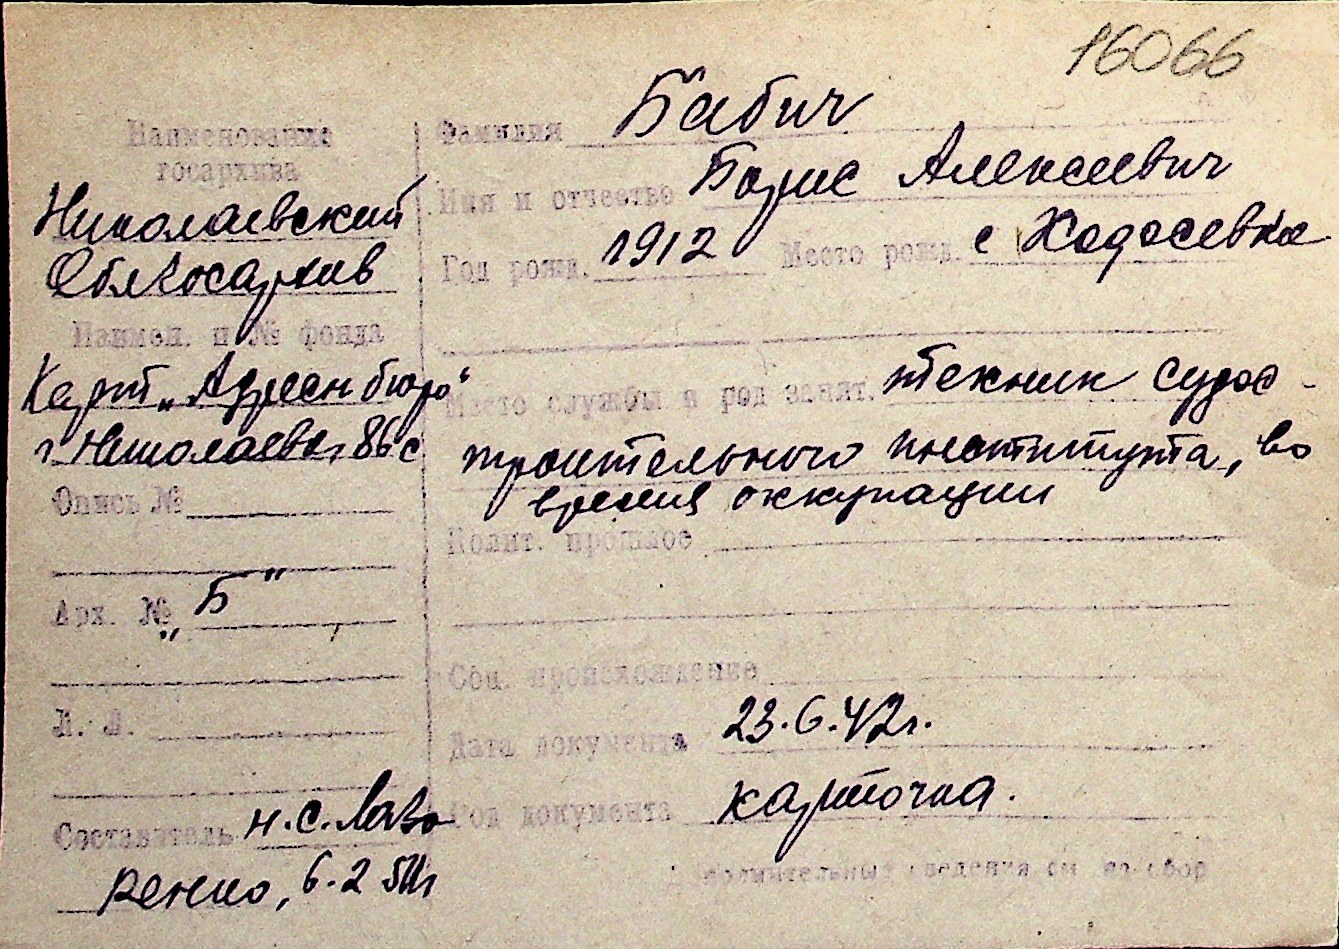 16066
Наименование
госархива
Николаевский
Облгосархив
Наимен. и № фонда
Карт „Адресн бюро“
г Николаева, 86с
Опись №
Арх. № „Б“
Л. Л.
Составитель н.с. Лав
ренко, 6.2
Фамилия Бабич
Имя и отчество Борис Алексеевич
Год рожд. 1912 Место рожд. с Ходосевка
Место службы и род занят. техник судос-
троительного института, во
время оккупации
Полит. прошлое
Соц. происхождение
Дата документа 23.6.42г.
Род документа карточка.
Дополнительные сведения см на обор